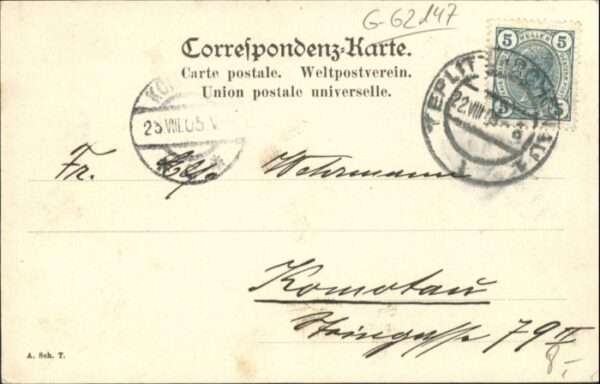 G-62147
Correspondenz-Karte.
Carte postale. Weltpostverein.
Union postale universelle.
5 HELLER 5
TEPLITZ-SCHÖNAU 1
22.VIII.05
KO
23.VIII.05.V
Fr. Else Wehrmann
Komotau
Steingasse 79 II
8,-
A. Sch. T.